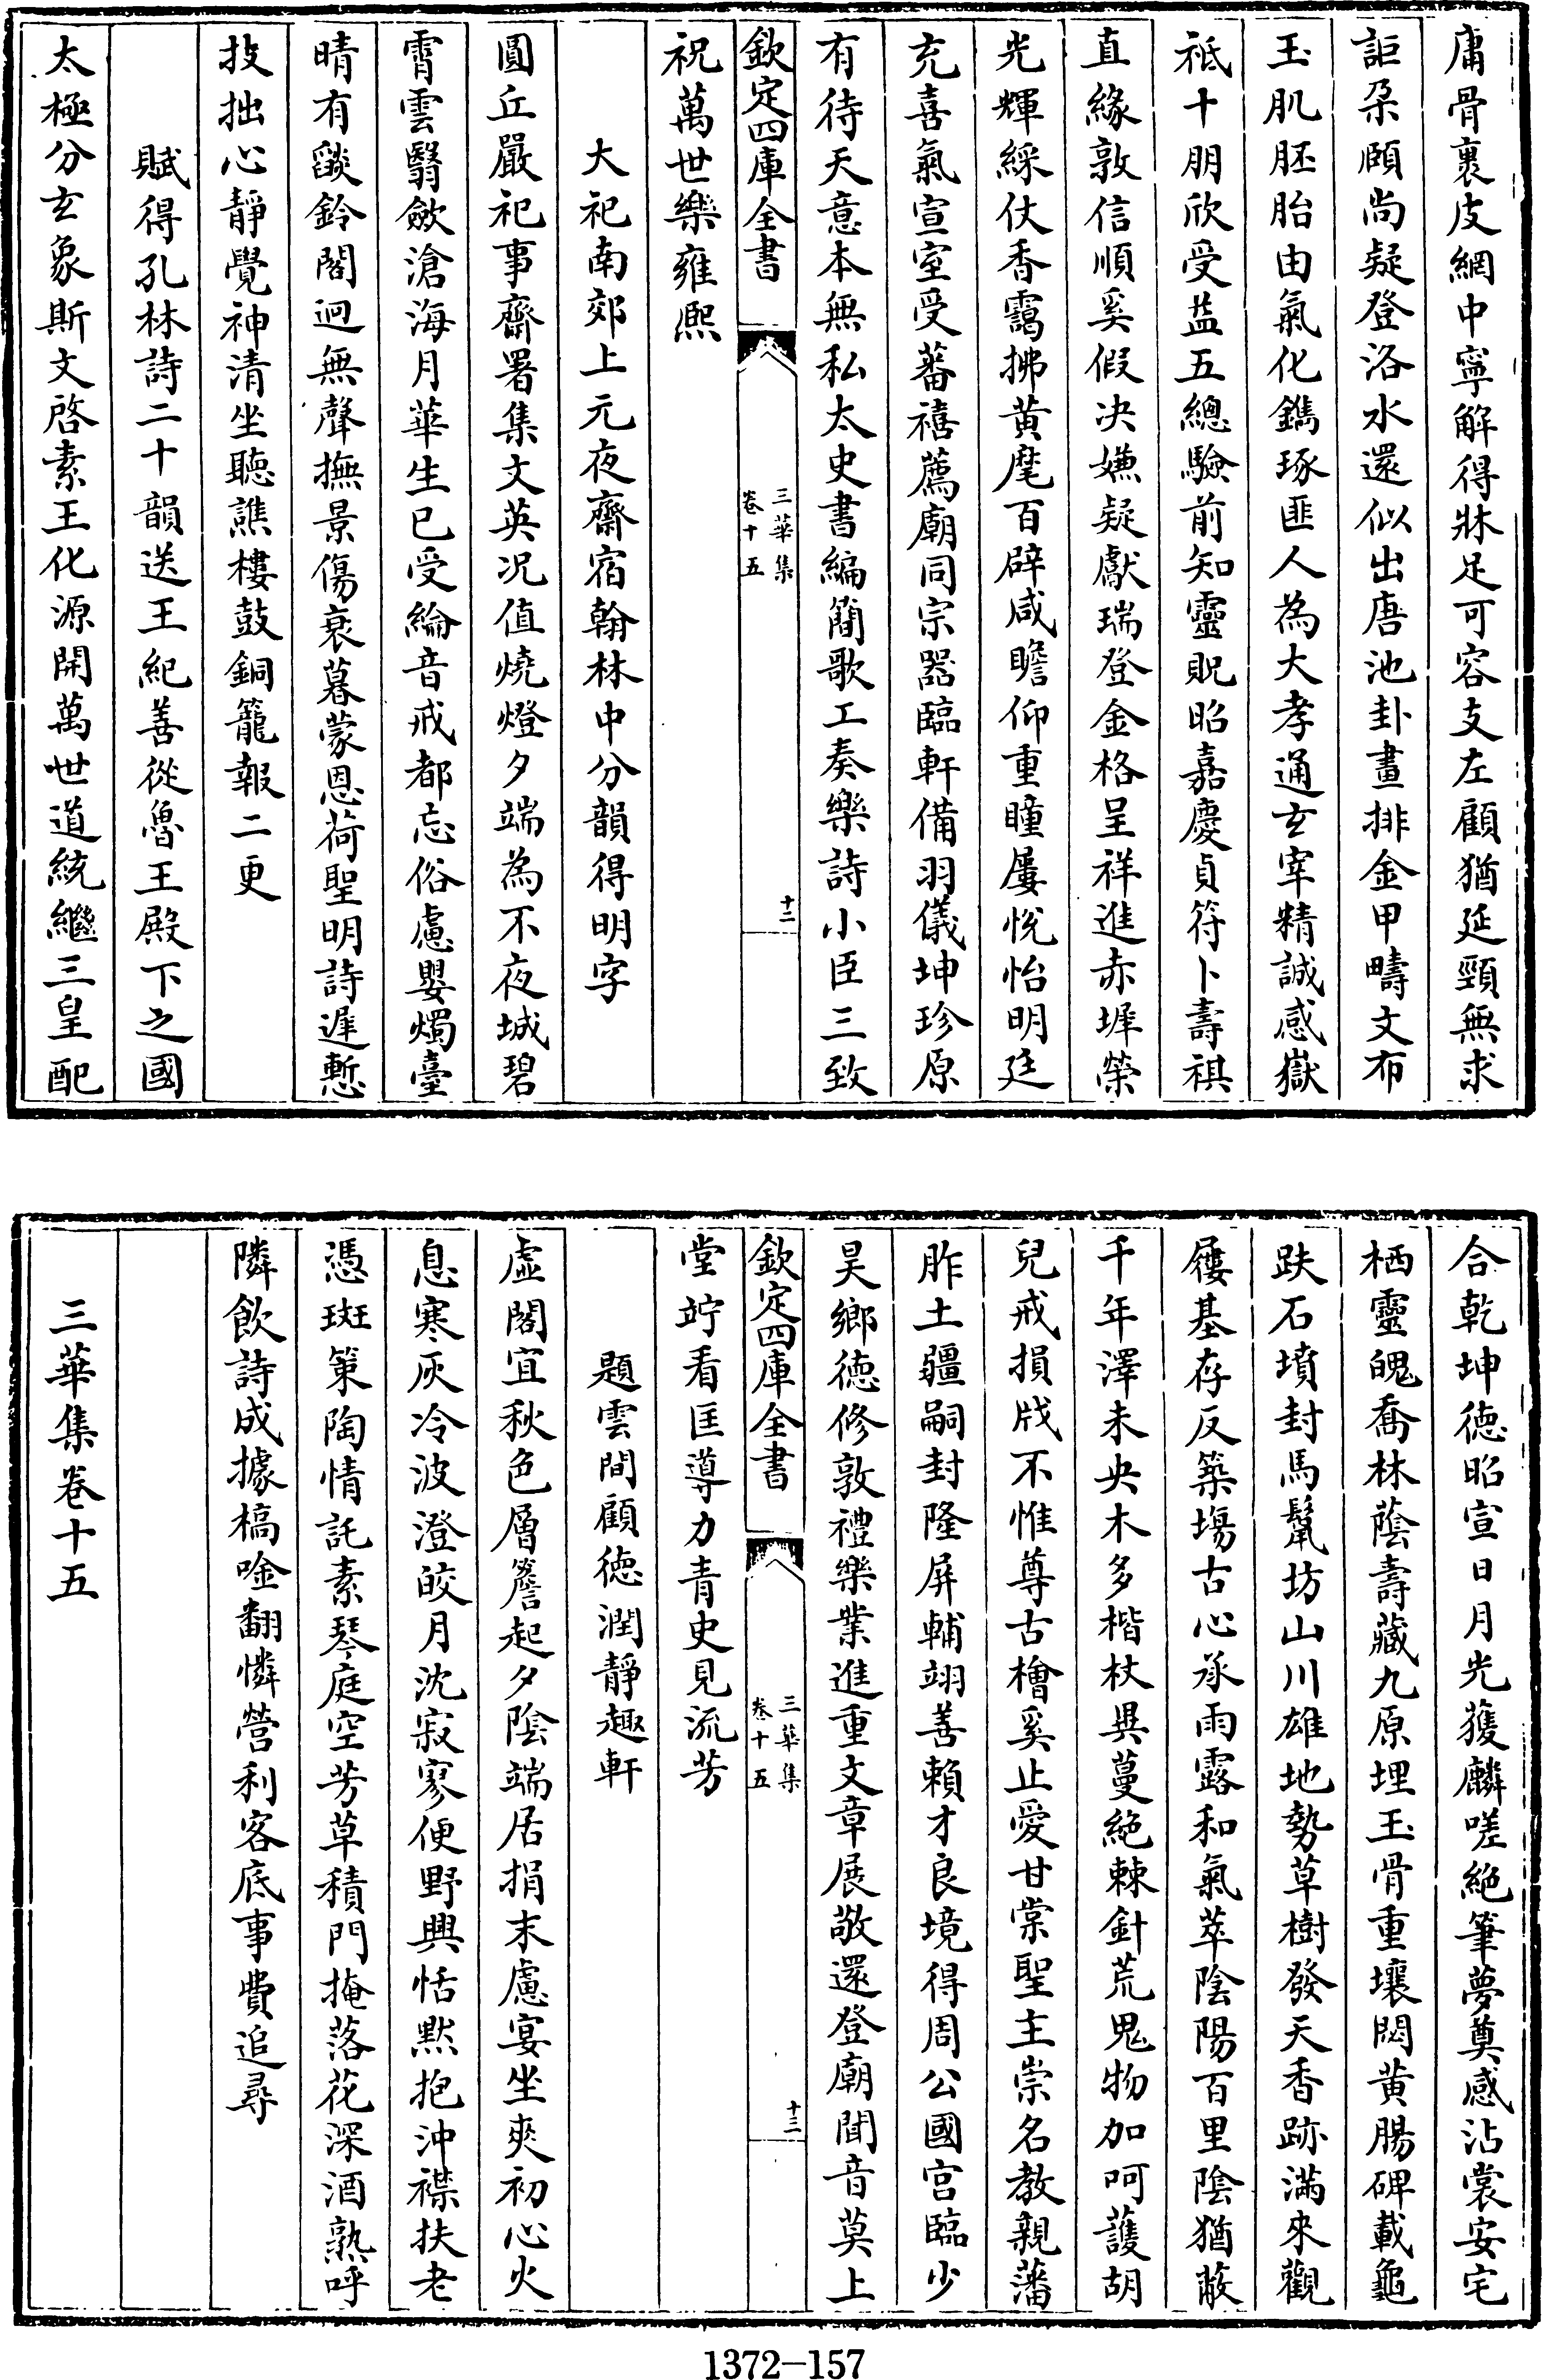 庸骨裹皮網中寧解得牀足可容支左顧猶延頸無求
詎朶頤尚疑登洛水還似出唐池卦畫排金甲疇文布
玉肌胚胎由氣化鐫琢匪人為大孝通玄宰精誠感嶽
祗十朋欣受益五總驗前知靈貺昭嘉慶貞符卜壽祺
直緣敦信順奚假决嫌疑獻瑞登金格呈祥進赤墀榮
光輝綵仗香靄拂黄麾百辟咸瞻仰重瞳屢悅怡明廷
充喜氣宣室受蕃禧薦廟同宗器臨軒備羽儀坤珍原
有待天意本無私太史書編簡歌工奏樂詩小臣三致
欽定四庫全書
三華集
卷十五
十二
祝萬世樂雍熈
大祀南郊上元夜齋宿翰林中分韻得明字
圓丘嚴祀事齋署集文英况值燒燈夕端為不夜城碧
霄雲翳斂滄海月華生已受綸音戒都忘俗慮嬰燭臺
晴有燄鈴閣迥無聲撫景傷衰暮蒙恩荷聖明詩遲慙
技拙心靜覺神清坐聽譙樓鼓銅籠報二更
賦得孔林詩二十韻送王紀善從魯王殿下之國
太極分玄象斯文啓素王化源開萬世道統繼三皇配
合乾坤德昭宣日月光獲麟嗟絶筆夢奠感沾裳安宅
栖靈魄喬林蔭壽藏九原埋玉骨重壤閟黄腸碑載龜
趺石墳封馬鬛坊山川雄地勢草樹發天香跡滿來觀
屨基存反築塲古心承雨露和氣萃陰陽百里陰猶蔽
千年澤未央木多楷杖異蔓絶棘針荒鬼物加呵護胡
兒戒損戕不惟尊古檜奚止愛甘棠聖主崇名教親藩
胙土疆嗣封隆屏輔翊善賴才良境得周公國宫臨少
昊鄉德修敦禮樂業進重文章展敬還登廟聞音莫上
欽定四庫全書
三華集
卷十五
十三
堂竚看匡導力青史見流芳
題雲間顧德潤靜趣軒
虚閣宜秋色層簷起夕陰端居捐末慮宴坐爽初心火
息寒灰冷波澄皎月沈寂寥便野興恬黙抱沖襟扶老
憑斑策陶情託素琴庭空芳草積門掩落花深酒熟呼
隣飲詩成據槁唫翻憐營利客底事費追尋
三華集卷十五
1372—157